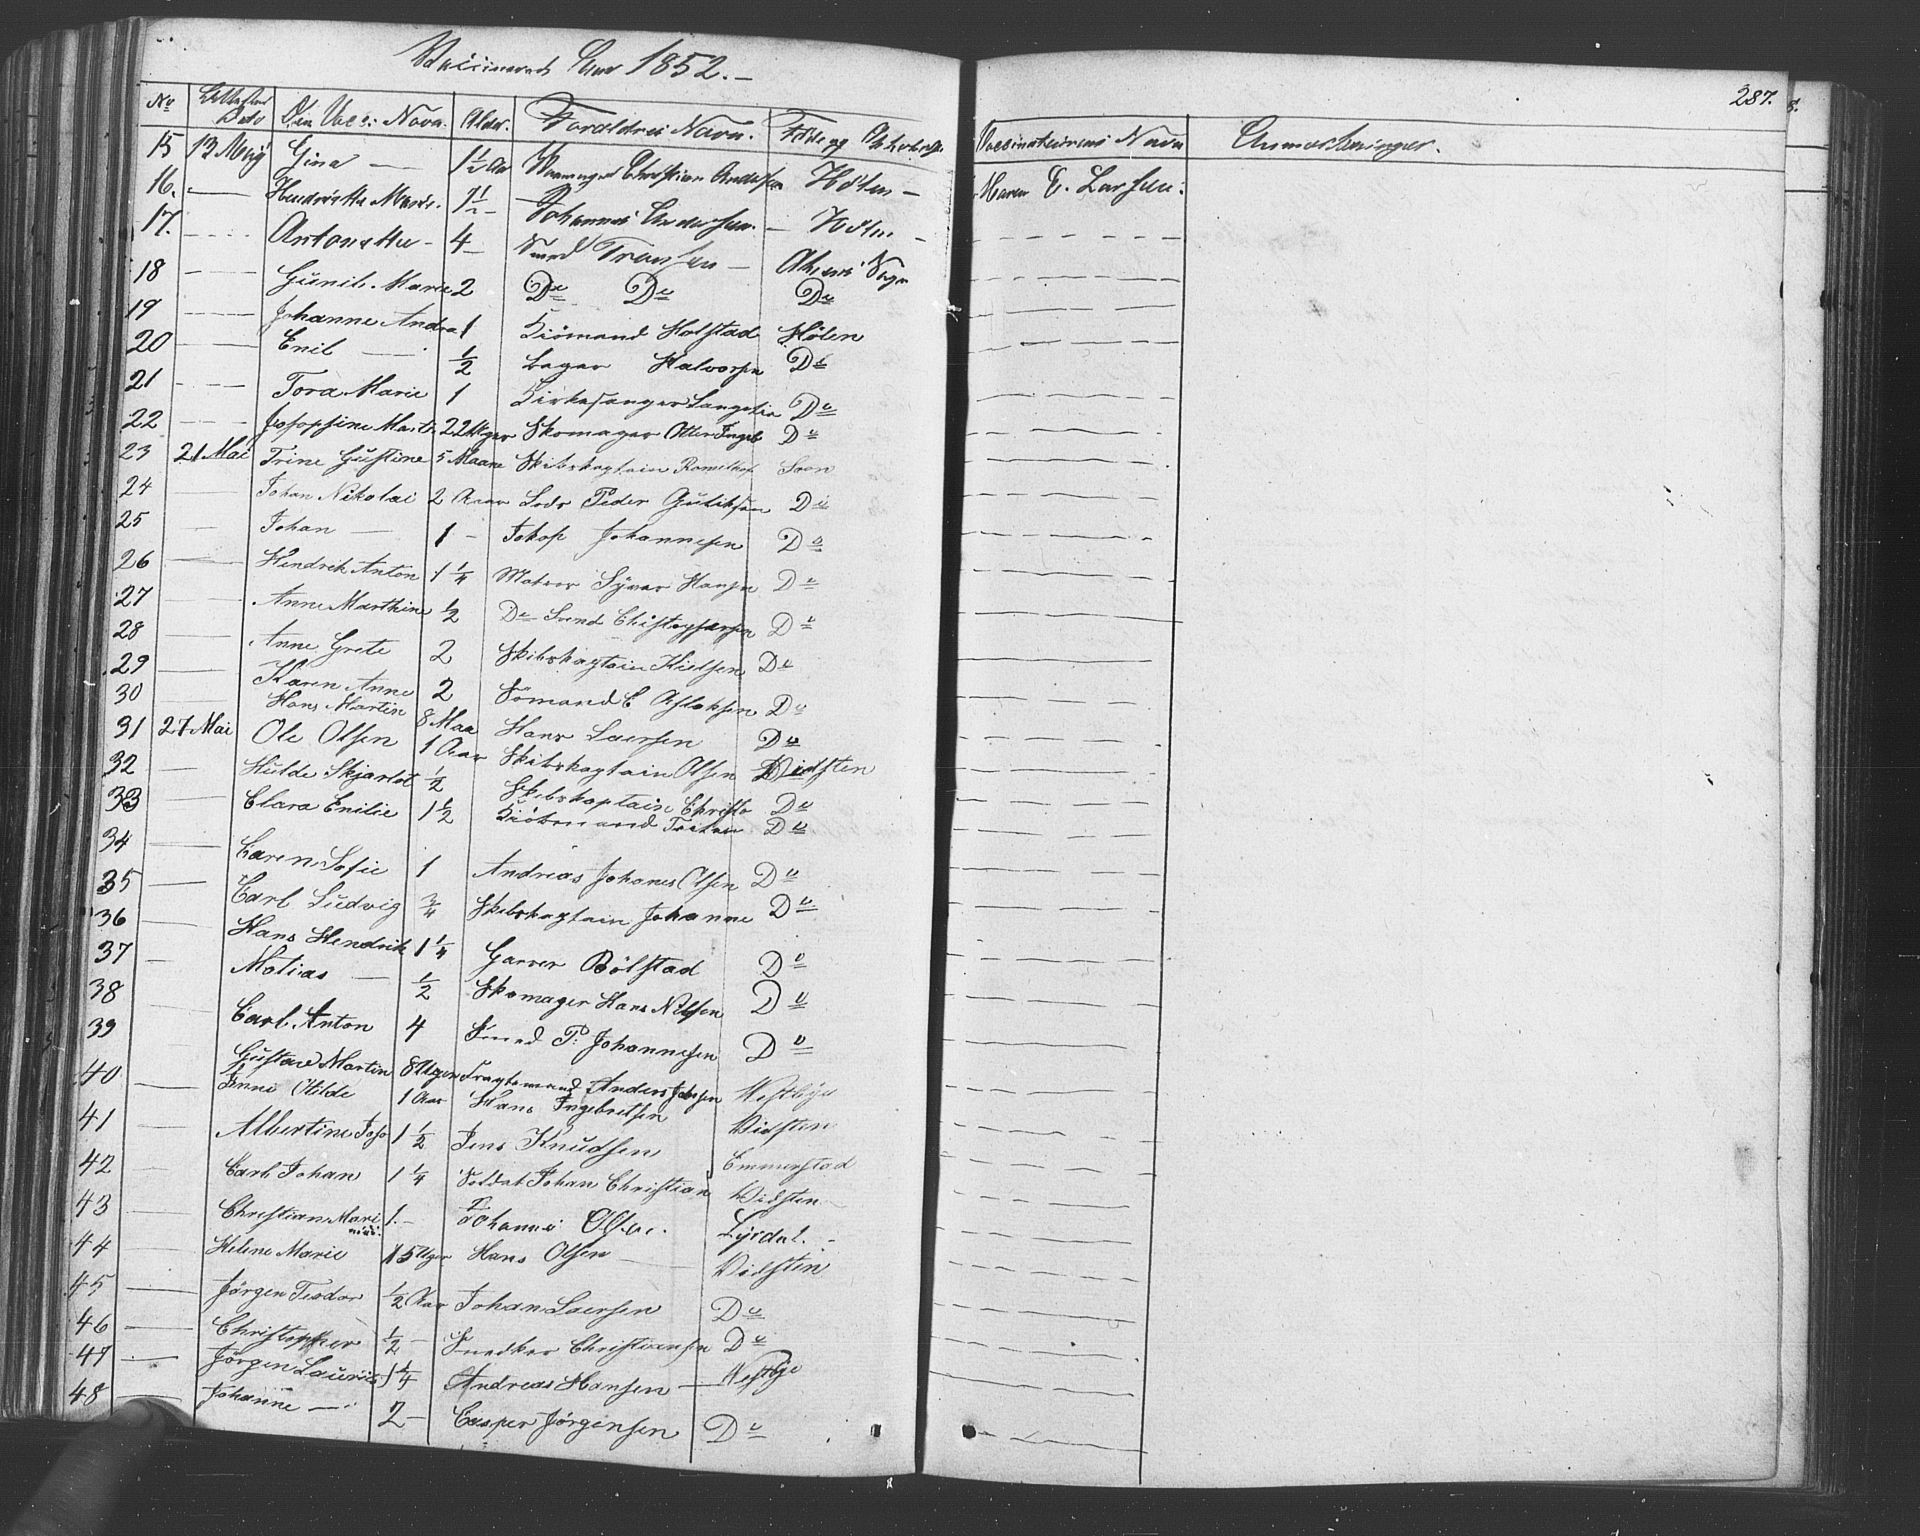 Vaccinerede Aar 1852.
287.
No Attestens Dato Den Vacs: Navn. Alder. Forældres Navn. Føde og Vaccinateurens Navn Anmærkninger.
15 13 Maij Gina — 1½ Aar Christian Andersen Hølen — Maren E. Larsen.
16. — Hendriette Marie. 1½ — Johannes Andersen. — Hølen —
17. — Antonette — 4 — Svend Fransen — Sogn
18 — Gunil. Marie 2 Do Do Do
19 — Johanne Andrea 1 Kiömand Holstad Hølen
20 — Emil — ½ Bager Halvorsen Do
21 — Tora Marie 1 Kirkesanger Langelie Do
22 — Josopfine Marti 22 Uger Skomager Otter Ingeb Do
23 21 Mai Trine Gustine 5 Maane Skibskaptain Son
24 — Johan Nikolai 2 Aar Lods Peder Guliksen Do
25 — Johan — 1 — Jakop Johannesen Do
26 — Hendrik Anton 1¼ Matros Syver Hansen Do
27 — Anne Marthine ½ Do Svend Christoffersen Do
28 — Anne Grete 2 Skibskaptain Nielsen Do
29 — Karen Anne 2 Sömand E Aslaksen Do
30 Hans Martin 8 Maa Hans Laersen Do
31 27 Mai Ole Olsen 1 Aar Skibskaptain Olsen Vidsten
32 — Hulde Skjarlot ½ Skibskaptain Christo Do
33 — Clara Emilie 1½ Kiöbmand Do
34 — Caren Sofie 1 Andreas Johanes Olsen Do
35 — Carl Ludvig ¾ Skibskaptain Johanne Do
36 — Hans Hendrik 1¼ Garver Bölstad Do
37 — Matias — ½ Skomager Hans Nilssen Do
38 — Carl Anton 4 Smed P. Johannesen Do
39 — Gustav Martin 8 Uger Fragtemand Anders Jensen Vestbye
40 — Jenni Hilde 1 Aar Hans Ingebretsen Vidsten
41 — Albertine Jose 1½ Jens Knudsen Emmerstad
42 — Carl Johan 1¼ Soldat Johan Christian Vidsten
43 — Christian Mari 1. — Johannes Olsen. Lyrdal. —
44 — Helene Marie 15 Uger Hans Olsen — Vidsten
45 — Jörgen Teodor ½ Aar Johan Laersen Do
46 — Christopher ½ — Snedker Christiansen Do
47 — Jörgen Laurits 1¼ Andreas Hansen — Vestbye
48 — Johanne — 2 — Casper Jörgensen Do